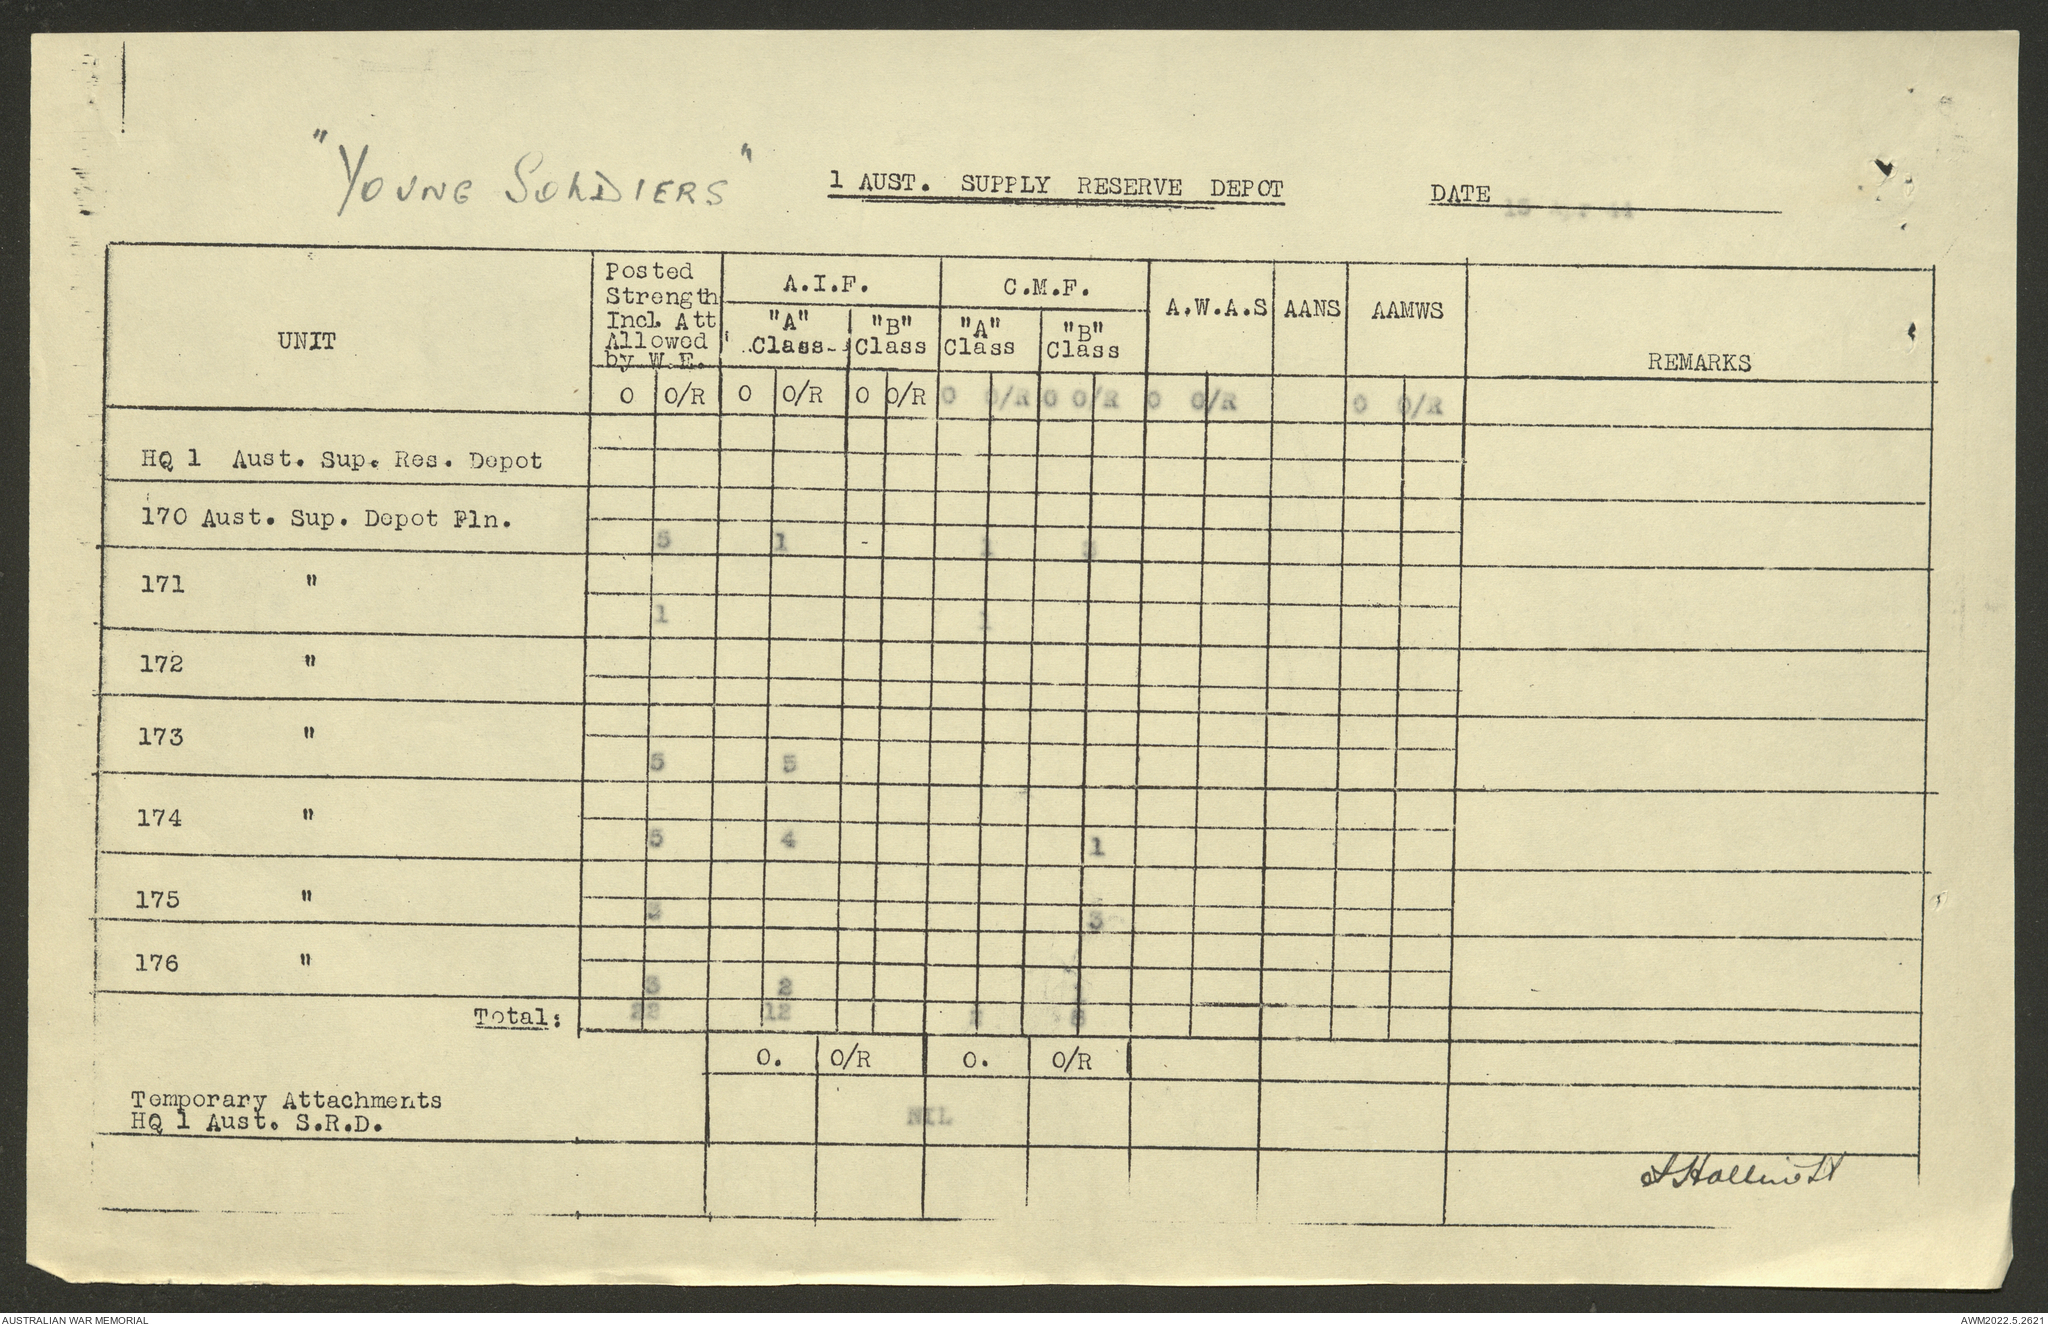 "YOUNG SOLDIERS"
1 AUST. SUPPLY RESERVE DEPOT
DATE 15 Apr 44
UNIT
Posted Strength Incl. Att Allowed by W.E.
A.I.F.
C.M.F.
A.W.A.S
AANS
AAMWS
REMARKS
"A" Class
"B" Class
"A" Class
"B" Class
O O/R O O/R O O/R O O/R O O/R O O/R O O/R
HQ 1 Aust. Sup. Res. Depot
170 Aust. Sup. Depot Pln.
5 1 - 1 3
171 "
1 1
172 "
173 "
5 5
174 "
5 4 1
175 "
3 3
176 "
3 2 1
Total: 22 12 2 8
O. O/R O. O/R
Temporary Attachments
HQ 1 Aust. S.R.D.
NIL
AUSTRALIAN WAR MEMORIAL
AWM2022.5.2621